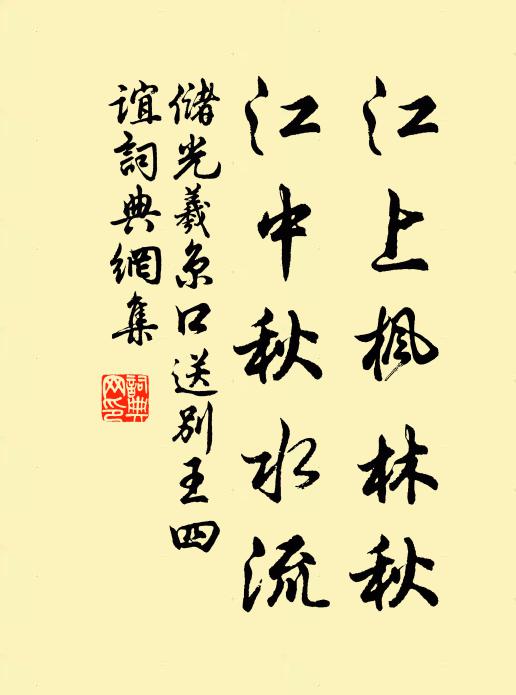 江上楓林秋
江中秋水流
儲光羲京口送別王四
誼詞典網集
詞典網印